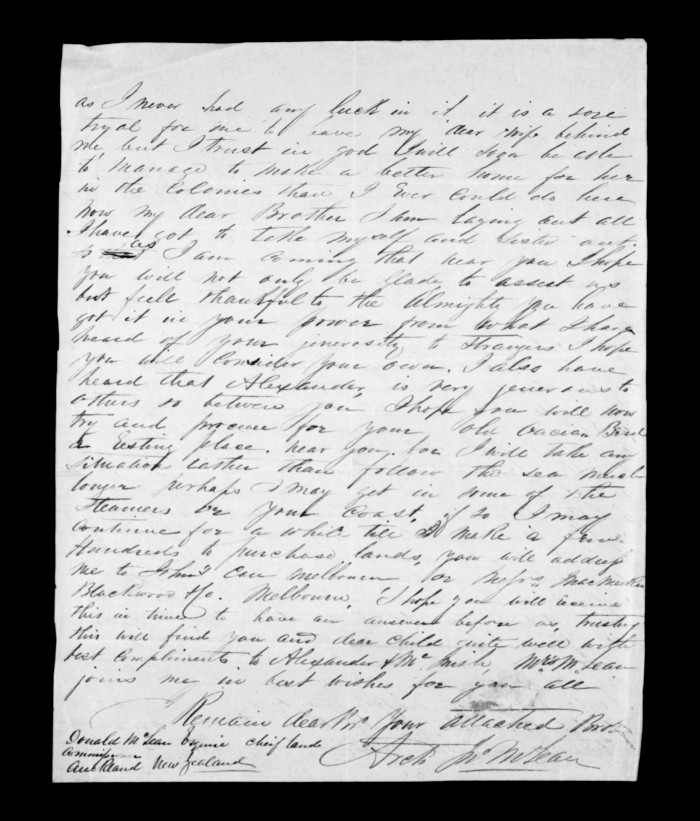 as I never had any luck in it it is a sore
tryal for me to leave my dear wife behind
me but I trust in god I will soon be able
to manage to make a better home for her
in the Colonies than I Ever could do here
now my dear Brother I am laying out all
I have got to take myself and Sister out.
as I am Coming that near you I hope
you will not only be glade to assist us
but feell thankful to the almighty you have
got it in your power from what I have
heard of your generosity to Strangers I hope
you will Consider your own. I also have
heard that Alexander, is very generous to
others so between you I hope you will now
try and procure for your old Ocian Bird
a Resting place. near you. for I will take any
Situation rather than follow the sea much
longer perhaps I may get in some of the
Steamers on your Coast, if so I may
Continue for a while till I make a few
Hundreds to purchase lands, you will address
me to Care Melbourn or Messrs
Blackwood & Co. Melbourne, I hope you will receive
this in time to have an answer before us, trusting
this will find you and dear child quite well with
best Compliments to Alexander & Mr Mrs McLean
joins me in best wishes for you all
Remain dear Br Your attached Brother
Arch Jn McLean
Donald McLean Esquire Cheif land
Commiss
Auckland New Zealand